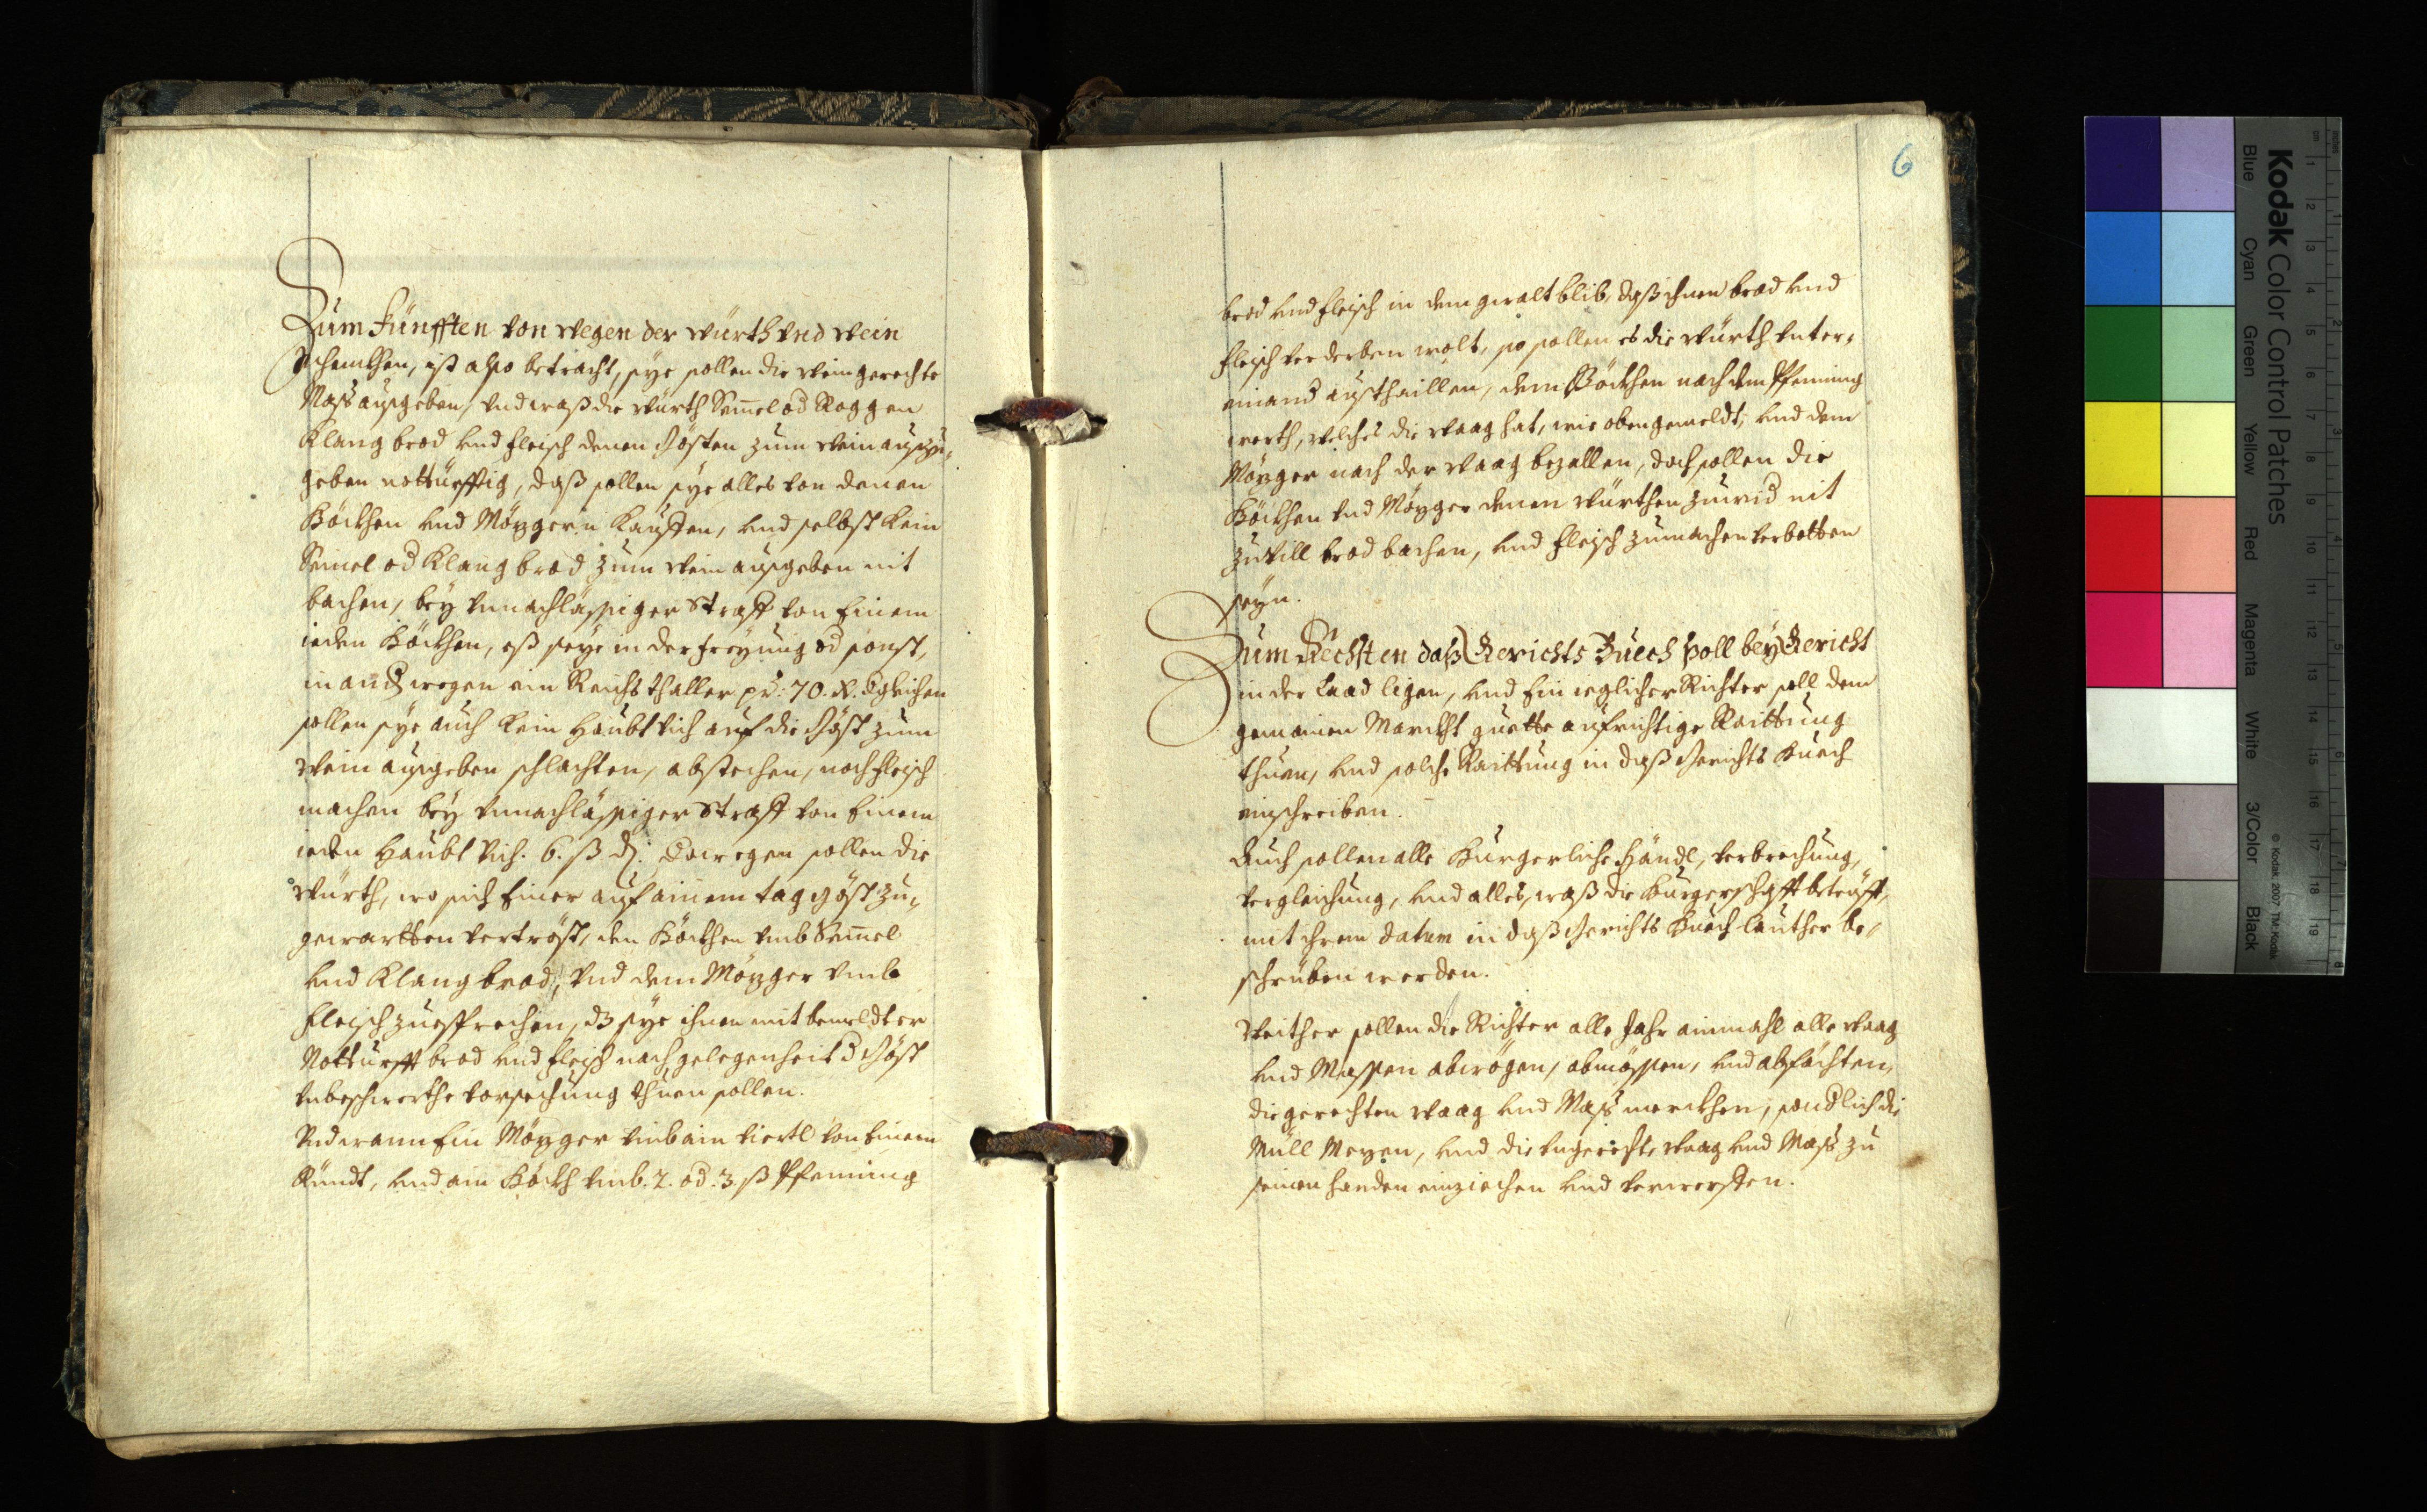 Zum Fünfften von wegen der würth vnd wein
schenkhen, ist also betracht, sye sollen die wein gerechte
Mass ausgeben, vnd waß die würth Semel od Roggen
Klang brod vnd fleisch denen Gästen zum wein auszu-
geben nottürfftig, daß sollen sye alles von denen
Böckhen vnd Mözgern Kauffen, vnd selbst kein
Semel od Klang brod zum wein ausgeben nit
bachen, bey vnnachlässiger straff von Einem
ieden Böckhen, eß seye in der freyung od sonst,
in and wegen ein Reichs thaller pr: 70. x. dgleichen
sollen sye auch kein Haubt vich auf die Gäst zum
wein ausgeben schlachten, abstechen, noch fleisch
machen bey vnnachlässiger straff von Einem
ieden Haubt vich. 6. ß d. Entwegen sollen die
würth, wo sich Einer auf ainem tag gäst zu-
gewartten vertröst, den Böckhen vmb Semel
vnd Klang brod, vnd dem Mözger vmb
fleisch zuesprechen, dz sye ihnen mit bemeldter
Notturfft brod vnd fleisch nach gelegenheit d Gäst
vnbeschwerthe vorsechung thuen sollen.
Vnd wann Ein Mözger vmb ain viertl von Einem
Rindt, vnd ain Böckh vmb. 2. od. 3. ß Pfenning
6
brod vnd fleisch in dem gwalt blib, daß ihnen brod vnd
fleisch verderben wolt, so sollen es die würth vnter-
einand austhaillen, dem Böckhen nach dem Pfenning
werth, welches die waag hat, wie oben gemeldt, vnd dem
Mözger nach der waag bezallen, doch sollen die
Böckhen vnd Mözger denen würthen zuwid nit
zuvill brod bachen, vnd fleisch zumachen verbotten
seyn.
Zum Sechsten daß Gerichts Buech soll bey Gericht
in der Laad ligen, vnd Ein ieglicher Richter soll dem
gemainen Marckht guette aufrichtige Raittung
thuen, vnd solche Raittung in daß Gerichts Buech
einschreiben.
Auch sollen alle Burgerliche Händl, verbrechung,
vergleichung, vnd alles, waß die Burgerschafft beträfft,
mit ihrem datum in daß Gerichts Buech lauther be-
schriben werden.
Weither sollen die Richter alle Jahr ainmahl alle waag
vnd Massen abwögen, abmössen, vnd abfächten,
die gerechten waag vnd Mass merckhen, sondlich die
Müll Mezen, vnd die vngerechte waag vnd Mass zu
seinen handen einziechen vnd verwerffen.
Kodak Color Control Patches
Blue Cyan Green Yellow Red Magenta White 3/Color Black
© Kodak, 2007 TM: Kodak